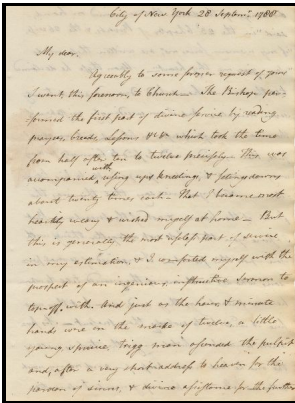 City of New York 28 Septemr. 1788
My dear
Agreeably to some former request of yours
I went, this forenoon, to Church — The Bishop per-
formed the first part of divine service by reading
prayers, creeds, Lessons &c &c which took the time
from half after ten to twelve precisely — This was
accompanied with rising up & kneeling, & sitting down
about twenty times each. That I became most
heartily weary & wished myself at home — But
this is generally the most useless part of service
in my estimation, & I comforted myself with the
prospect of an ingenious, instructive Sermon to
top off with. And just as the hour & minute
hands were on the mark of twelve, a little
young, spruce, trigg man ascended the pulpit
and, after a very short address to heaven for the
pardon of sinners, & divine assistance for the further